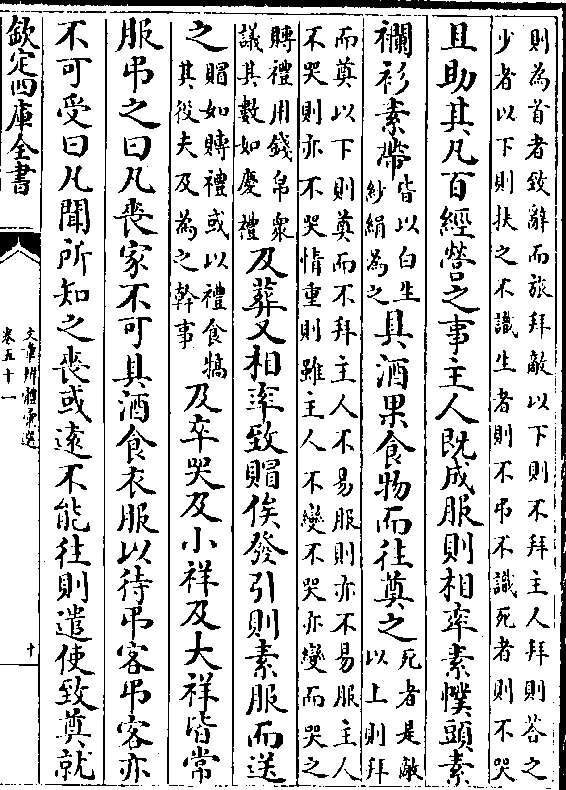 則為首者致辭而旅拜敵以下則不拜主人拜則答之
少者以下則扶之不識生者則不弔不識死者則不哭
且助其凡百經營之事主人既成服則相率素幞頭素
襴衫素帶皆以白生紗絹為之具酒果食物而往奠之死者是敵以上則拜
而奠以下則奠而不拜主人不易服則亦不易服主人
不哭則亦不哭情重則雖主人不變不哭亦變而哭之
賻禮用錢帛衆議其數如慶禮及葬又相率致賵俟發引則素服而送
之賵如賻禮或以禮食犒其役夫及為之幹事及卒哭及小祥及大祥皆常
服弔之曰凡喪家不可具酒食衣服以待弔客弔客亦
不可受曰凡聞所知之喪或遠不能往則遣使致奠就
欽定四庫全書
文章辨體彙選
卷五十一
十